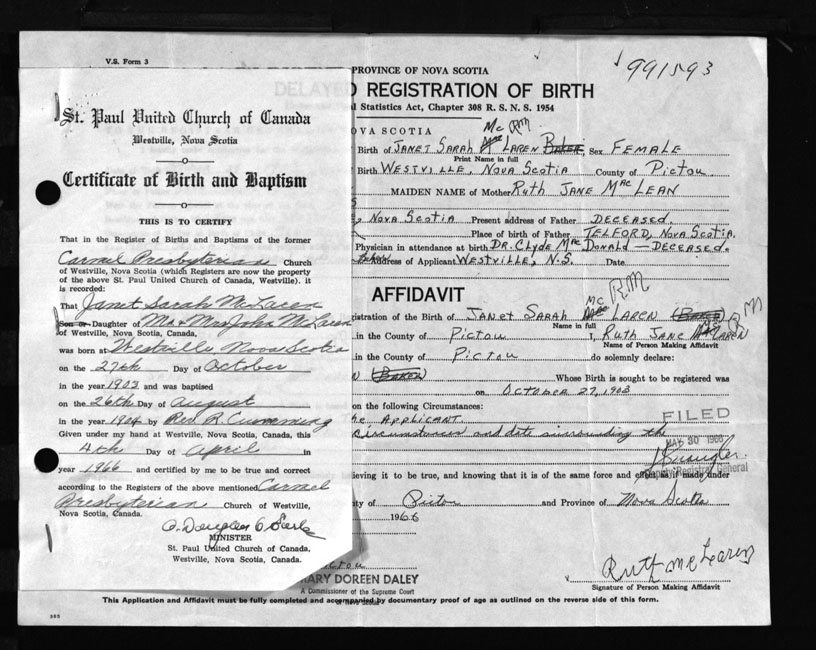 V.S. Form 3
St. Paul United Church of Canada
Westville, Nova Scotia
Certificate of Birth and Baptism
THIS IS TO CERTIFY
That in the Register of Births and Baptisms of the former
Carmel Presbyterian Church
of Westville, Nova Scotia (which Registers are now the property
of the above St. Paul United Church of Canada, Westville). it
is recorded:
That Janet Sarah McLaren
Son or Daughter of Mr. & Mrs John McLaren
of Westville, Nova Scotia, Canada,
was born at Westville Nova Scotia
on the 27th Day of October
in the year 1903 and was baptised
on the 26th Day of August
in the year 1904 by Rev. R. Cumming
Given under my hand at Westville, Nova Scotia, this
4th Day of April in
year 1966 and certified by me to be true and correct
according to the Registers of the above mentioned Carmel
Presbyterian Church of Westville,
Nova Scotia, Canada.
MINISTER
St. Paul United Church of Canada,
Westville, Nova Scotia, Canada.
991593
PROVINCE OF NOVA SCOTIA
DELAYED REGISTRATION OF BIRTH
l Statistics Act, Chapter 308 R. S. N. S. 1954
OVA SCOTIA
Mc RM
Birth of JANET SARAH LAREN BAKER Sex FEMALE
Print Name in full
Birth WESTVILLE, NOVA SCOTIA County of PICTOU
MAIDEN NAME of Mother RUTH JANE MacLEAN
NOVA SCOTIA Present address of Father DECEASED.
Place of birth of Father TELFORD, NOVA SCOTIA.
Physician in attendance at birth DR. CLYDE MacDONALD — DECEASED.
Address of Applicant WESTVILLE, N.S. Date
RM
AFFIDAVIT
istration of the Birth of JANET SARAH Mc LAREN (BAKER) RM
Name in full
in the County of PICTOU I, RUTH JANE LAREN
Name of Person Making Affidavit
in the County of PICTOU do solemnly declare:
N (BAKER) Whose Birth is sought to be registered was
on OCTOBER 27, 1903
on the following Circumstances:
FILED
the APPLICANT,
circumstances and date surrounding the
MAY 30 1966
Deputy Registrar General
believing it to be true, and knowing that it is of the same force and effect as if made under
ty of Pictou and Province of Nova Scotia
1966
Pictou
MARY DOREEN DALEY
A Commissioner of the Supreme Court
of Nova Scotia
Ruth McLaren
Signature of Person Making Affidavit
This Application and Affidavit must be fully completed and accompanied by documentary proof of age as outlined on the reverse side of this form.